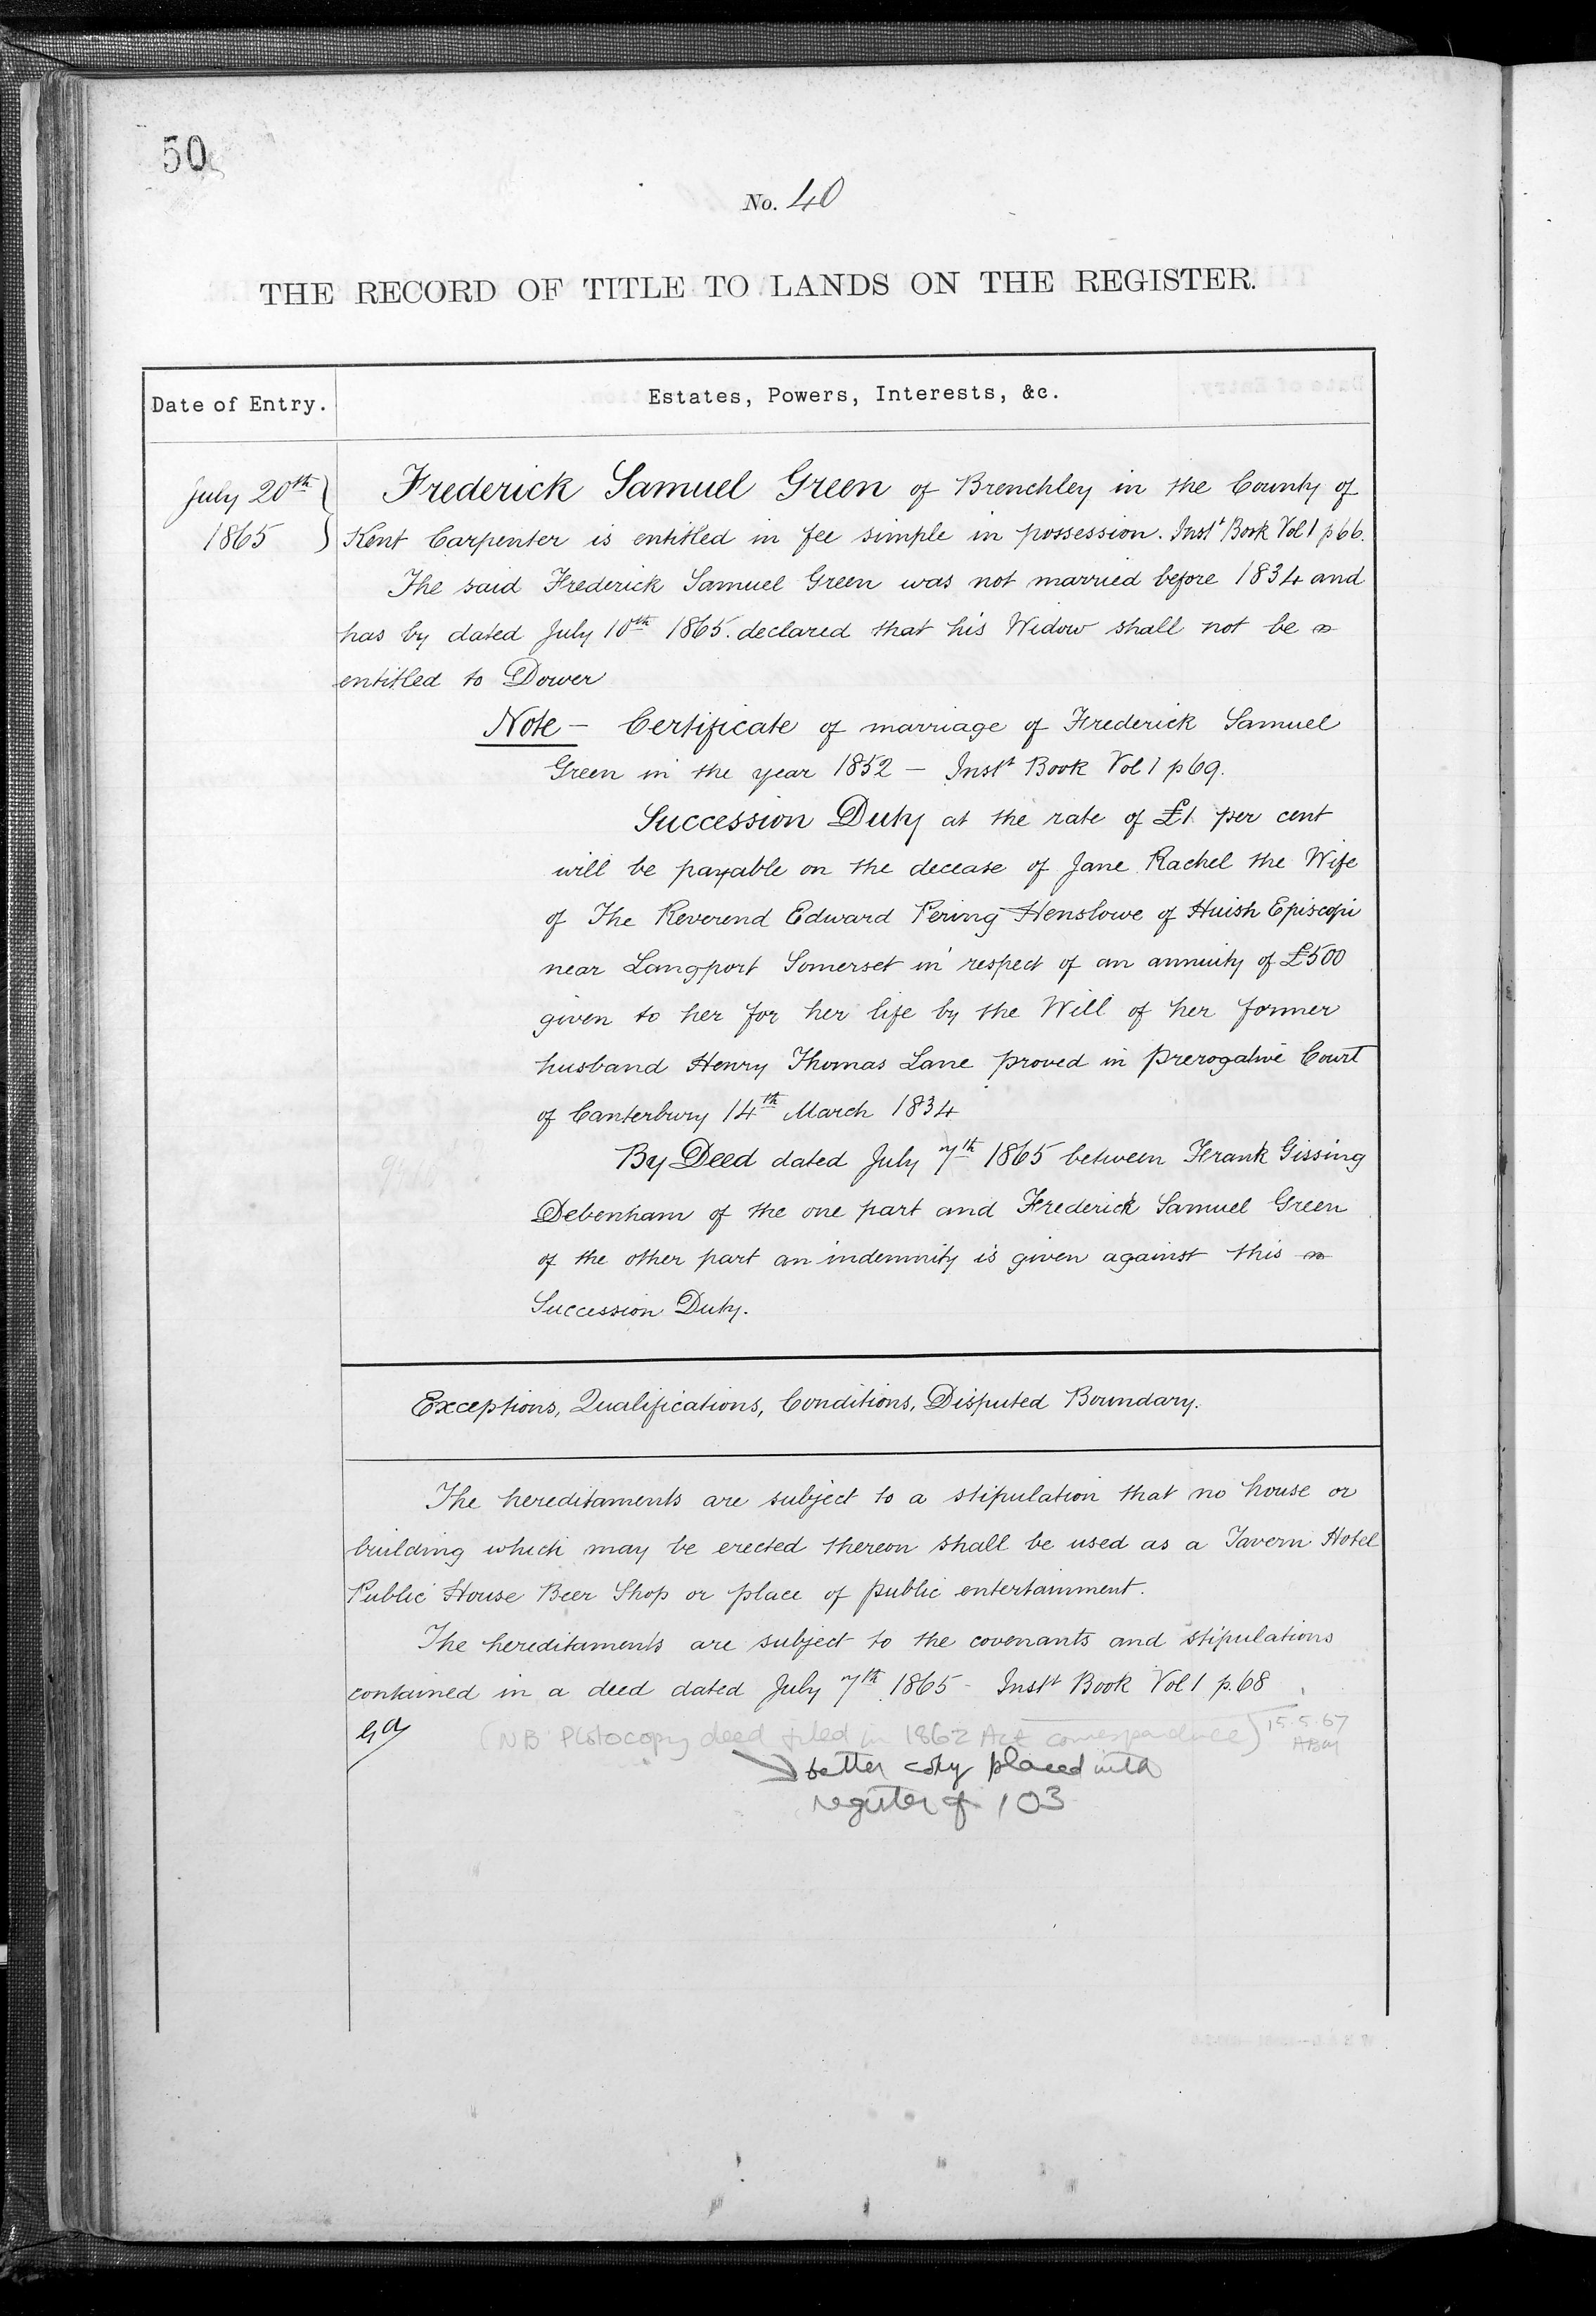 50
No. 40
THE RECORD OF TITLE TO LANDS ON THE REGISTER.
Date of Entry.
Estates, Powers, Interests, &c.
July 20th
1865
Frederick Samuel Green of Brenchley in the County of
Kent Carpenter is entitled in fee simple in possession. Inst Book Vol 1 p 66.
The said Frederick Samuel Green was not married before 1834 and
has by dated July 10th 1865. declared that his Widow shall not be
entitled to Dower
Note – Certificate of marriage of Frederick Samuel
Green in the year 1852 – Inst Book Vol 1 p 69.
Succession Duty at the rate of £1 per cent
will be payable on the decease of Jane Rachel the Wife
of The Reverend Edward Pering Henslowe of Huish Episcopi
near Langport Somerset in respect of an annuity of £500
given to her for her life by the Will of her former
husband Henry Thomas Lane proved in Prerogative Court
of Canterbury 14th March 1834
By Deed dated July 7th 1865 between Frank Gissing
Debenham of the one part and Frederick Samuel Green
of the other part an indemnity is given against this
Succession Duty.
Exceptions, Qualifications, Conditions, Disputed Boundary.
The hereditaments are subject to a stipulation that no house or
building which may be erected thereon shall be used as a Tavern Hotel
Public House Beer Shop or place of public entertainment.
The hereditaments are subject to the covenants and stipulations
contained in a deed dated July 7th 1865 – Inst Book Vol 1 p. 68
(NB Photocopy deed filed in 1862 Act correspondence) 15.5.67
better copy placed with
register of 103